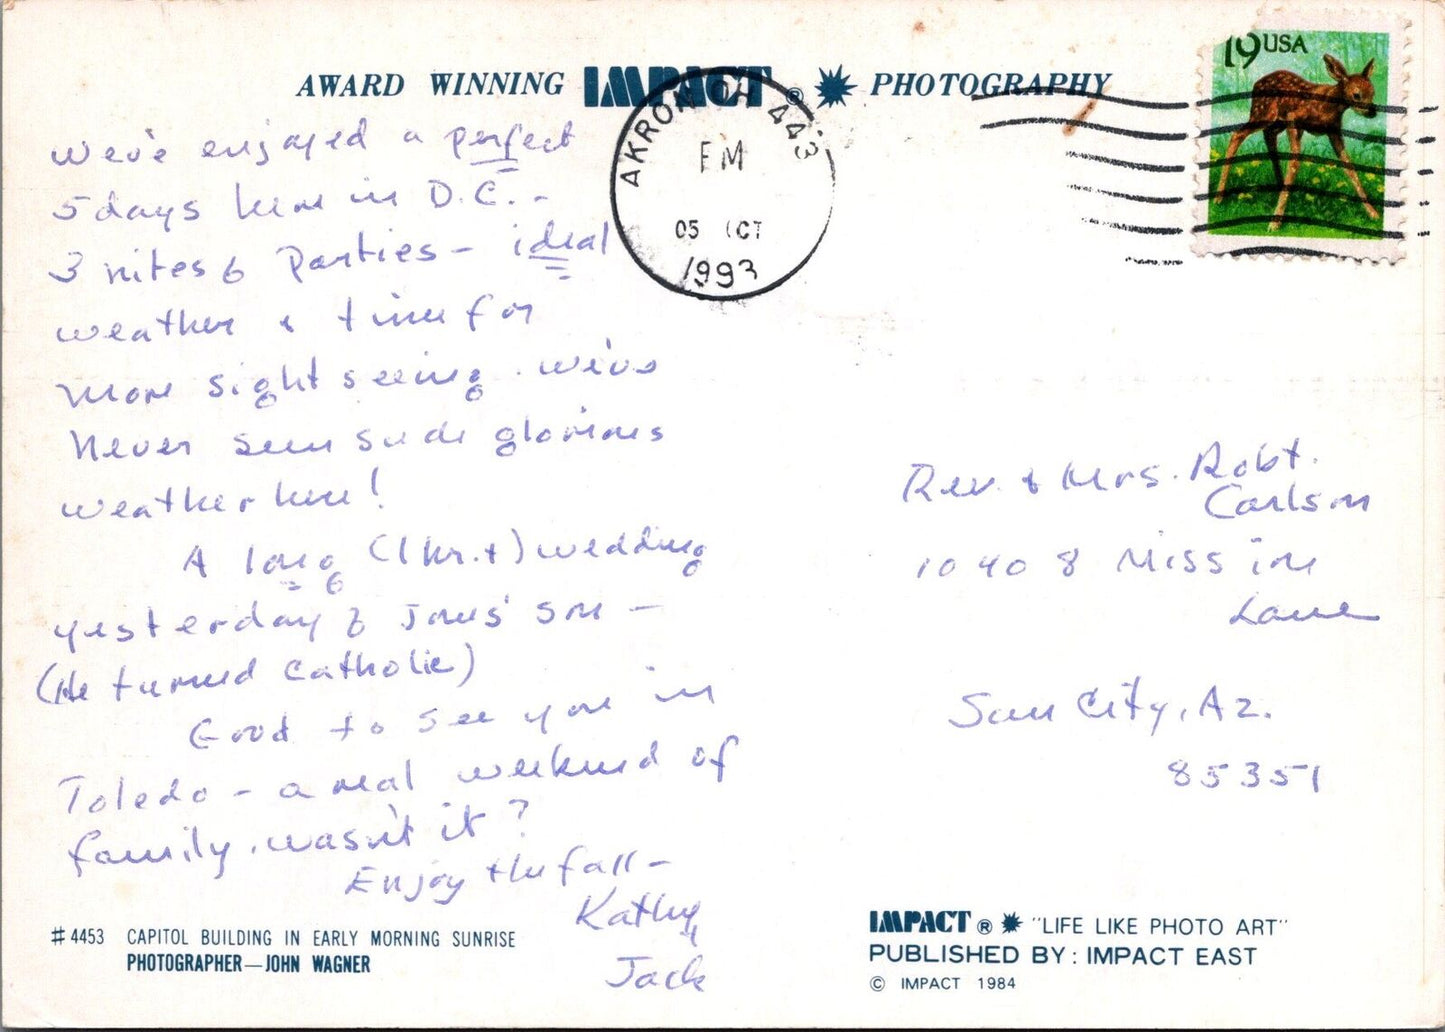 AWARD WINNING IMPACT ® PHOTOGRAPHY
19 USA
AKRON OH 443
PM
05 OCT
1993
We've enjoyed a perfect
5 days here in D.C. -
3 nites 6 Parties - ideal
weather & time for
more sightseeing. We've
never seen such glorious
weather here!
A long (1 hr.+) wedding
yesterday of son -
(He turned Catholic)
Good to see you in
Toledo - a real weekend of
family, wasn't it?
Enjoy the fall -
Kathy
&
Jack
Rev. & Mrs. Robt.
Carlson
10408 Mission
Lane
Sun City, Az.
85351
#4453 CAPITOL BUILDING IN EARLY MORNING SUNRISE
PHOTOGRAPHER—JOHN WAGNER
IMPACT ® "LIFE LIKE PHOTO ART"
PUBLISHED BY: IMPACT EAST
© IMPACT 1984